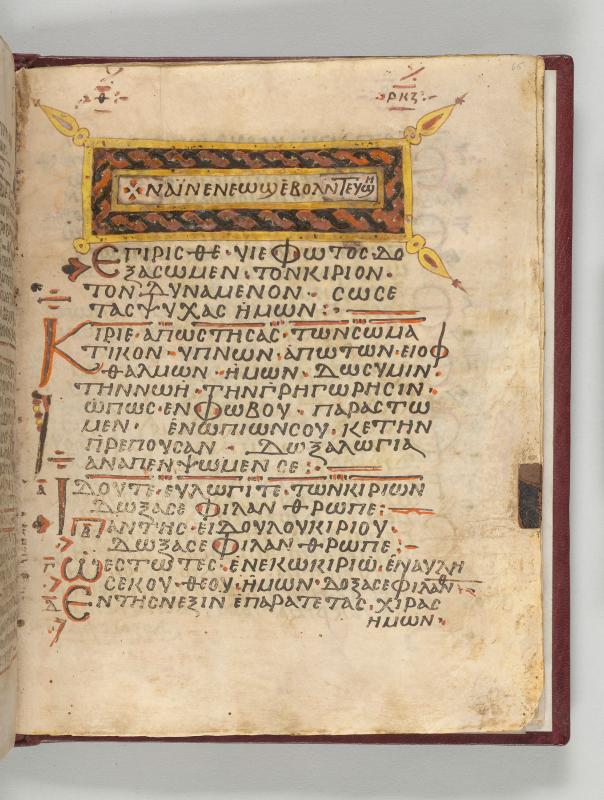 ⲑ ⲣⲕⲍ 65
ⲛⲁⲓ̈ⲛⲉⲛⲉⲱϣⲉⲃⲟⲗⲛ̄ⲧⲉⲩϣⲏ
ⲉⲅⲓⲣⲓⲥ ⲑⲉ · ⲩⲓⲉ ⲫⲱⲧⲟⲥ · ⲇⲟ
ⲝⲁⲥⲱⲙⲉⲛ · ⲧⲟⲛⲕⲓⲣⲓⲟⲛ ·
ⲧⲟⲛ ⲇⲩⲛⲁⲙⲉⲛⲟⲛ · ⲥⲱⲥⲉ
ⲧⲁⲥ ⲯⲩⲭⲁⲥ ⲏ̇ⲙⲱⲛ :
ⲕⲓⲣⲓⲉ · ⲁⲡⲱⲥⲧⲏⲥⲁⲥ · ⲧⲱⲛⲥⲱⲙⲁ
ⲧⲓⲕⲟⲛ · ⲩⲡⲛⲱⲛ · ⲁⲡⲱⲧⲱⲛ · ⲉⲓⲟⲫ
ⲑⲁⲗⲙⲱⲛ · ⲏ̇ⲙⲱⲛ · ⲇⲱⲥⲩⲙⲓⲛ ·
ⲧⲏⲛⲛⲱⲏ̇ · ⲧⲏⲛⲅⲣⲏⲅⲱⲣⲏⲥⲓⲛ ·
ⲱ̇ⲡⲱⲥ · ⲉⲛⲫⲱⲃⲟⲩ · ⲡⲁⲣⲁⲥⲧⲱ
ⲙⲉⲛ · ⲉⲛⲱⲡⲓⲱⲛⲥⲟⲩ · ⲕⲉⲧⲏⲛ
ⲡⲣⲉⲡⲟⲩⲥⲁⲛ · ⲇⲱⲝⲁⲗⲱⲅⲓⲁ
ⲁⲛⲁⲡⲉⲛⲯⲱⲙⲉⲛ ⲥⲉ :
ⲁ ⲓⲇⲟⲩⲧⲉ · ⲉⲩⲗⲱⲅⲓⲧⲉ · ⲧⲱⲛⲕⲓⲣⲓⲱⲛ
ⲇⲱⲝⲁⲥⲉ ⲫⲓⲗⲁⲛⲑⲣⲱⲡⲉ :
ⲃ ⲡⲁⲛⲧⲏⲥ · ⲉⲓⲇⲟⲩⲗⲟⲩⲕⲓⲣⲓⲟⲩ ·
ⲇⲱⲝⲁⲥⲉ ⲫⲓⲗⲁⲛⲑⲣⲱⲡⲉ :
ⲅ ⲱⲉⲥⲧⲱⲧⲉⲥ · ⲉⲛⲉⲕⲱⲕⲓⲣⲓⲱ̇ · ⲉⲛⲁⲩⲗⲏ
ⲥⲉⲕⲟⲩ · ⲑⲉⲟⲩ · ⲏ̇ⲙⲱⲛ · ⲇⲟⲝⲁⲥⲉⲫⲓⲗⲁⲛ
ⲇ ⲉⲛⲧⲏⲥⲛⲉⲝⲓⲛ ⲉⲡⲁⲣⲁⲧⲉ ⲧⲁⲥ · ⲭⲓⲣⲁⲥ
ⲏⲙⲱⲛ ·